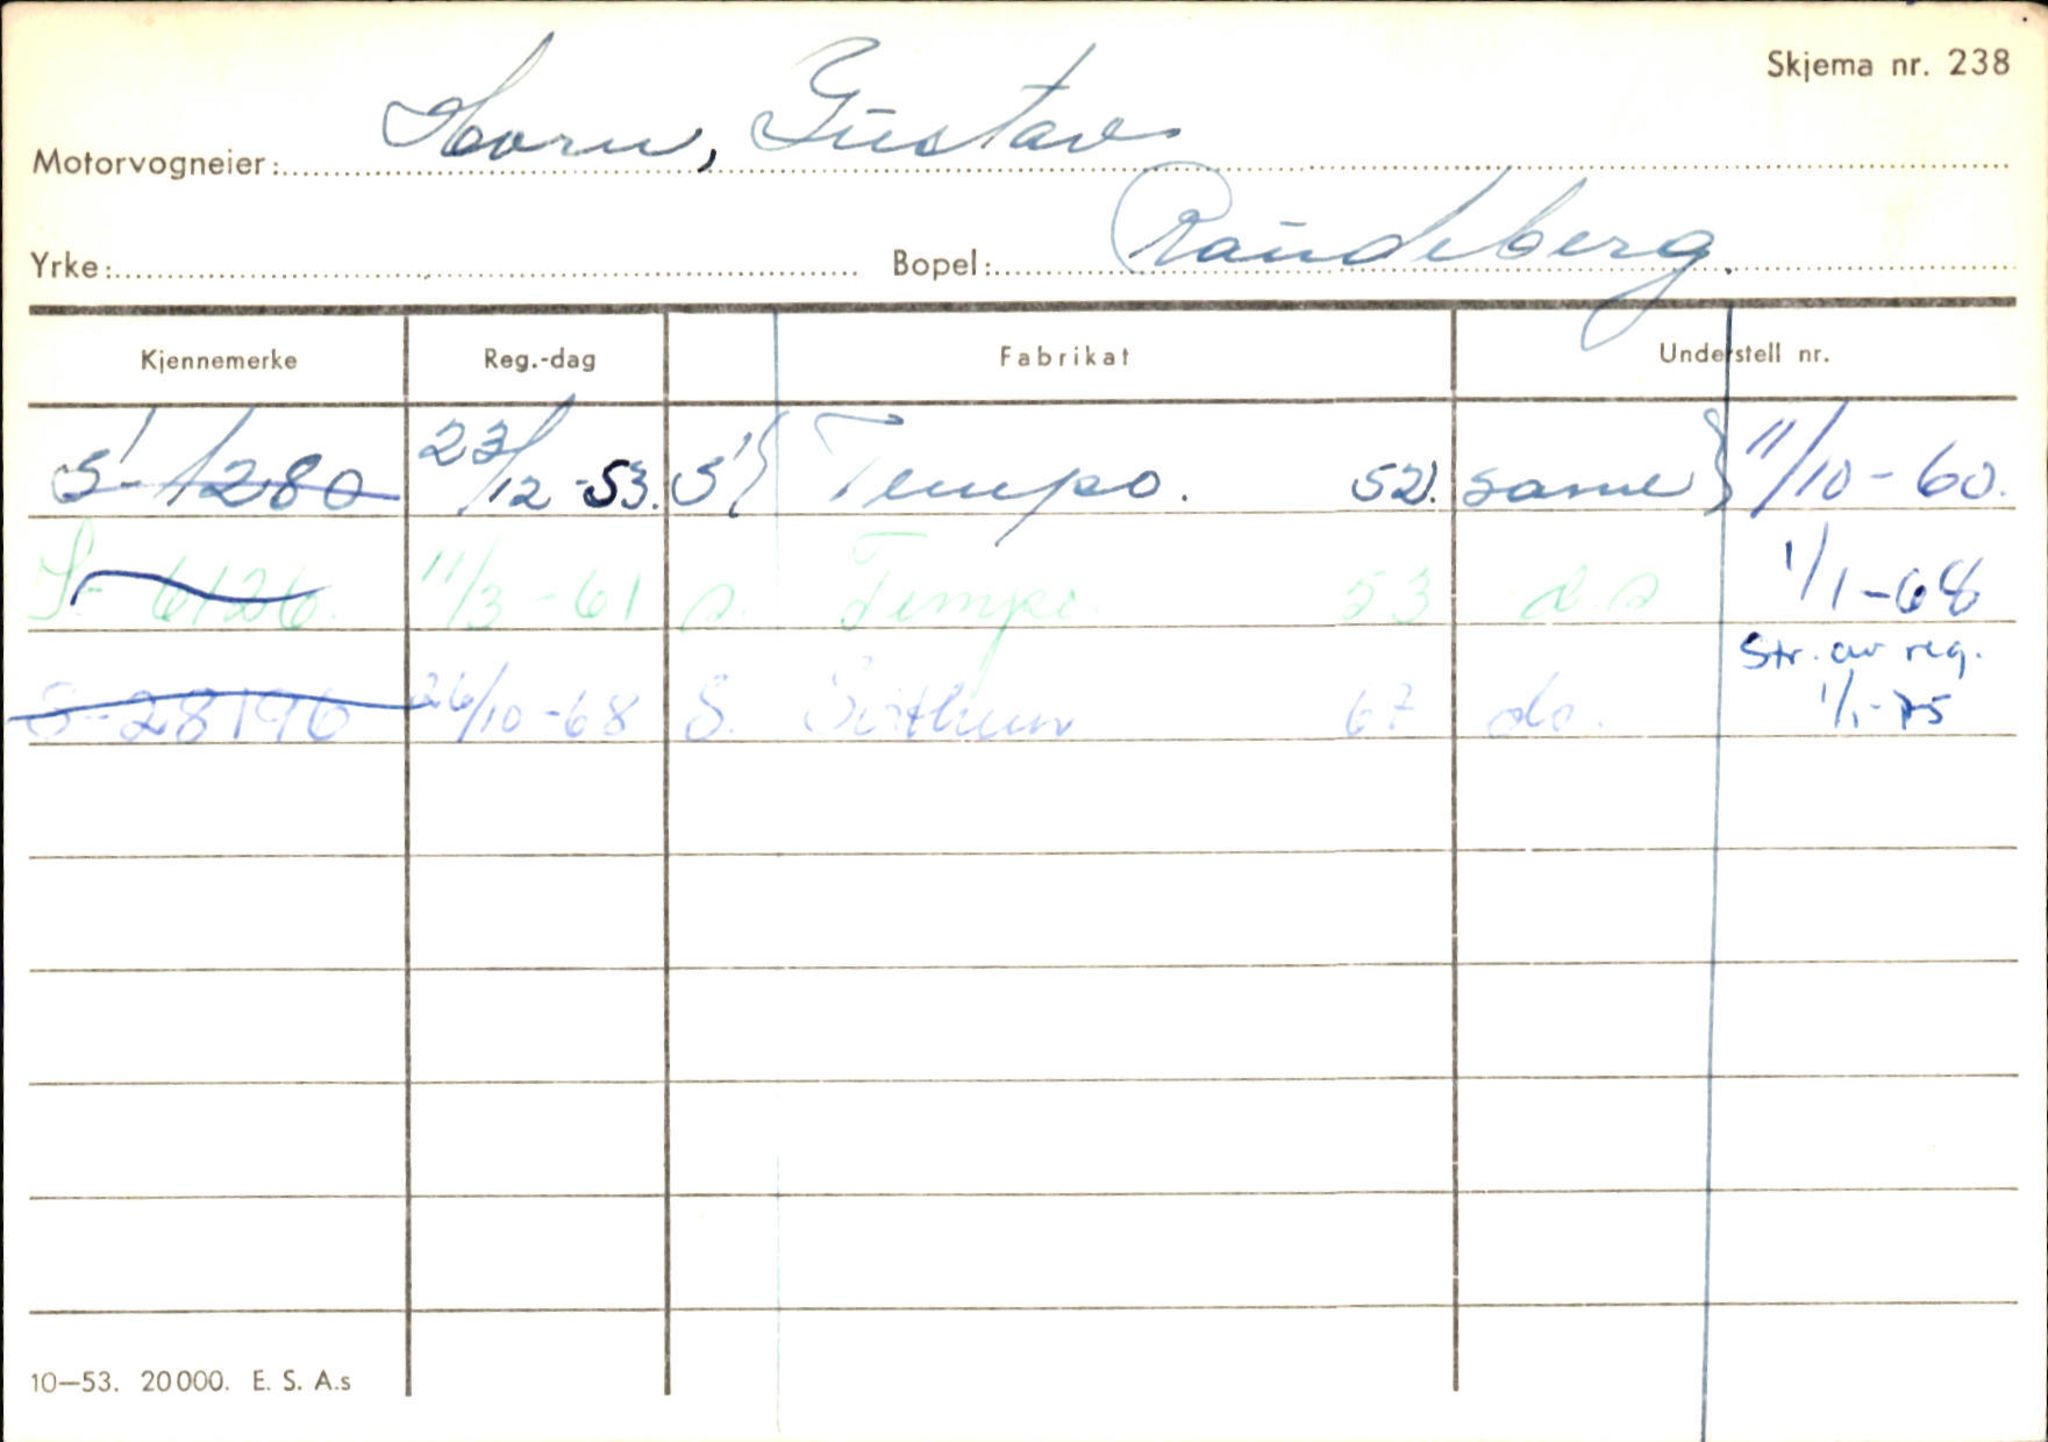 Skjema nr. 238
Motorvogneier: Horn, Gustav
Yrke: Bopel: Raudeberg.
Kjennemerke Reg.-dag Fabrikat Understell nr.
S-1280 23/12-53. S Tempo. 52. same 11/10-60.
S-6126. 11/3-61 s. Tempo 53 d.s 1/1-68
Str. av reg.
S-28196 26/10-68 S. 67 do. 1/1-75
10—53. 20000. E. S. A.s